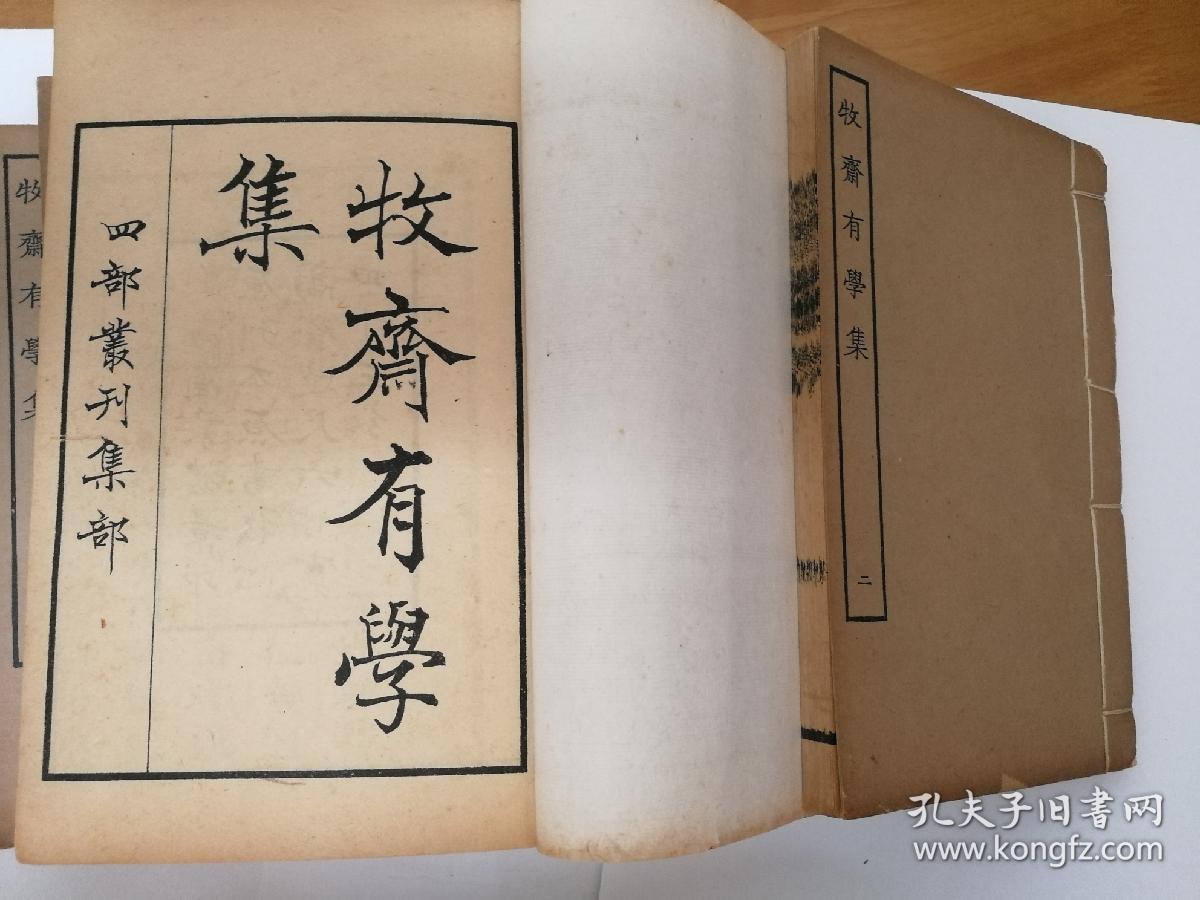 牧齋有學
集
四部叢刊集部
牧齋有學集
二
牧齋有學集
孔夫子旧书网
www.kongfz.com